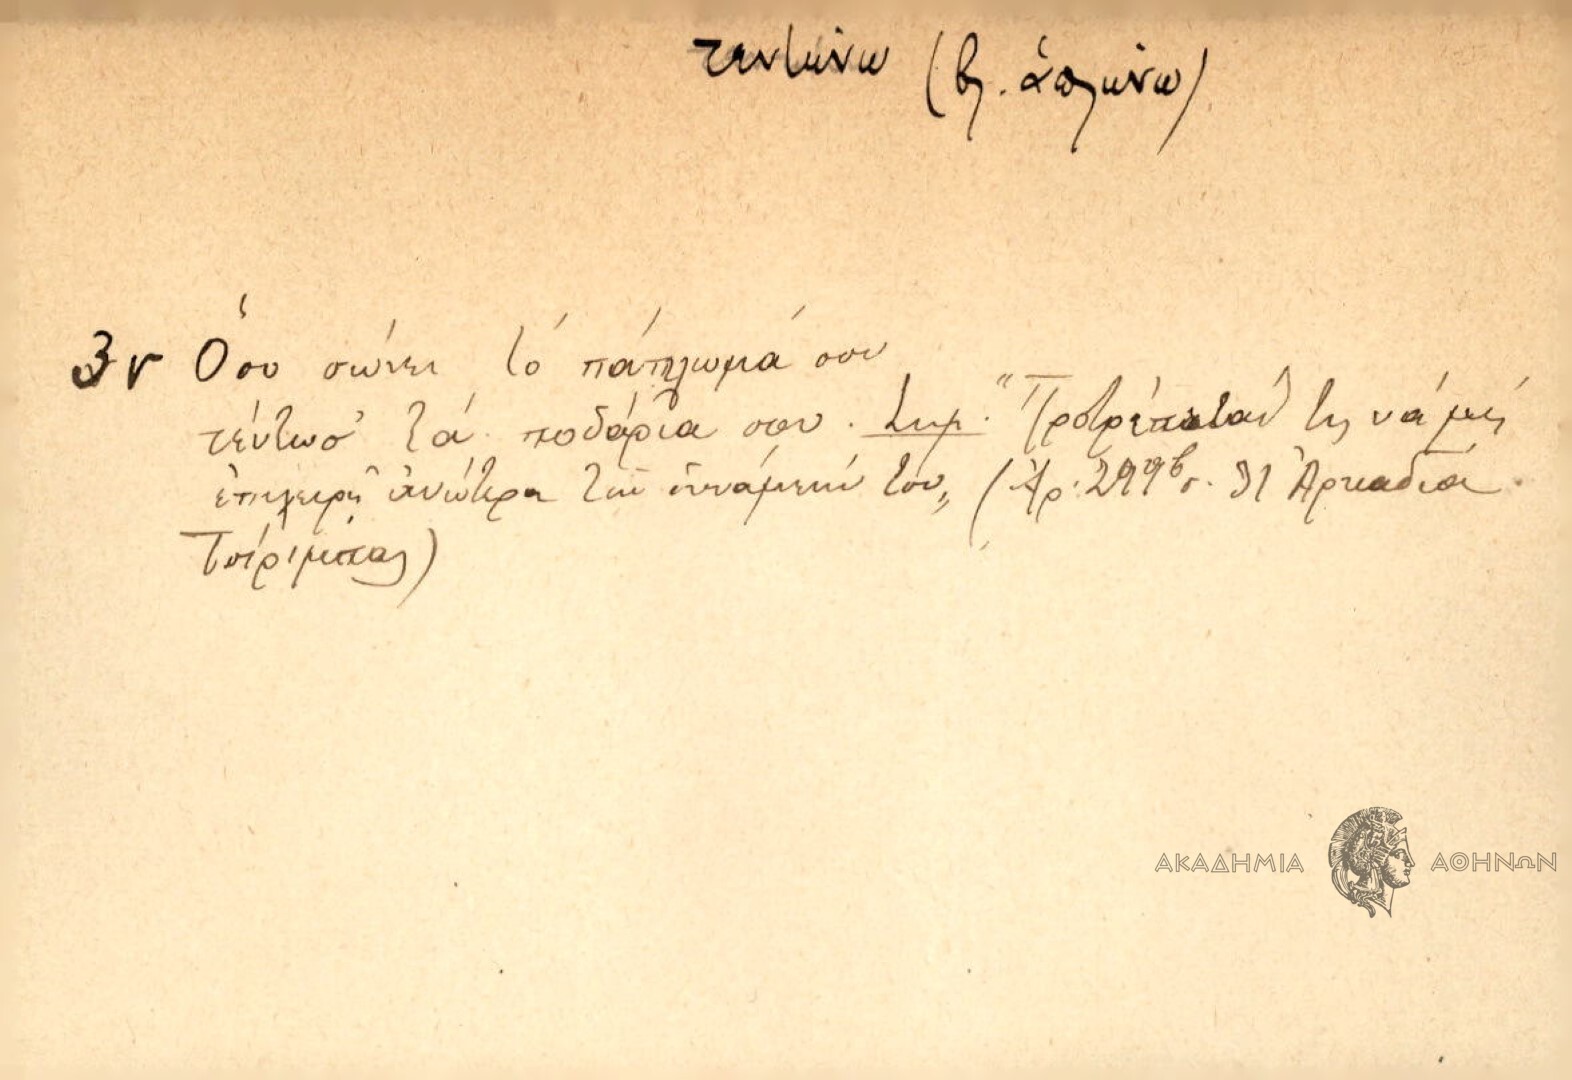 τεντώνω (βλ. ἁπλώνω)
3ν Ὅσο σώνει τό πάπλωμά σου
τέντωσ' τά ποδάρια σου. Σημ. "Προτρέπεται τις νά μή
ἐπιχειρῇ ἀνώτερα τῶν δυνάμεών του„ (Ἀρ. 299β σ. 31 Ἀρκαδία.
Τσίριμπας)
ΑΚΑΔΗΜΙΑ ΑΘΗΝΩΝ